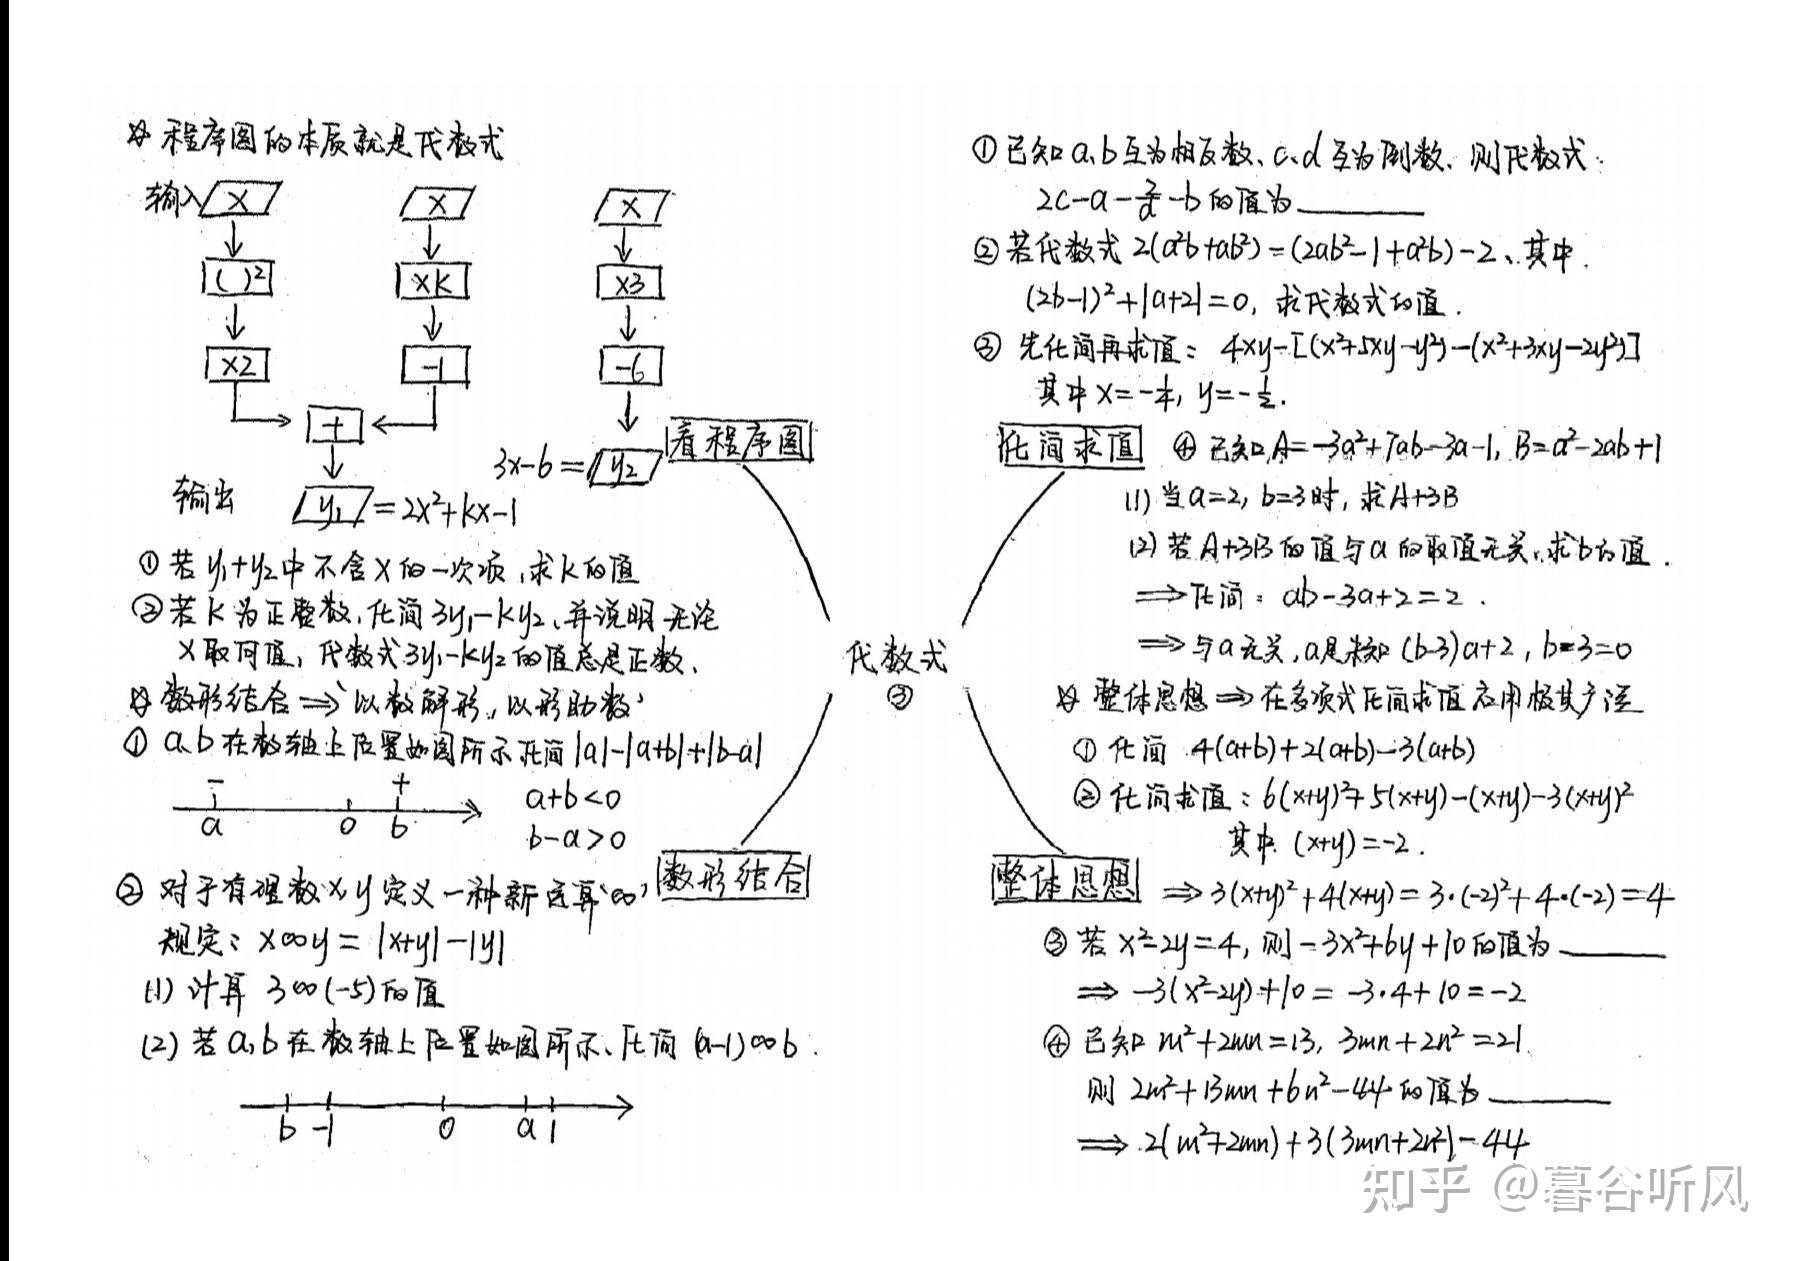 ☆ 程序图的本质就是代数式
输入 x x x
( )² ×k ×3
×2 -1 -6
+
3x-6= y₂
输出 y₁ =2x²+kx-1
看程序图
① 若 y₁+y₂中不含x的一次项,求k的值
② 若k为正整数,化简3y₁-ky₂、并说明无论
x取何值,代数式3y₁-ky₂的值总是正数.
☆ 数形结合⇒“以数解形,以形助数”
① a、b在数轴上位置如图所示化简|a|-|a+b|+|b-a|
- +
a 0 b
a+b<0
b-a>0
数形结合
② 对于有理数x,y定义一种新运算“∞”
规定: x∞y=|x+y|-|y|
(1) 计算 3∞(-5)的值
(2) 若a,b在数轴上位置如图所示、化简 (a-1)∞b.
b -1 0 a 1
代数式
③
① 已知a、b互为相反数、c、d互为倒数、则代数式:
2c-a-2/d-b的值为______
② 若代数式 2(a²b+ab²)=(2ab²-1+a²b)-2、其中.
(2b-1)²+|a+2|=0, 求代数式的值.
③ 先化简再求值: 4xy-[(x²+5xy-y²)-(x²+3xy-2y²)]
其中x=-1/4, y=-1/2.
化简求值
④ 已知A=-3a²+7ab-3a-1, B=a²-2ab+1
(1) 当a=2, b=3时, 求A+3B
(2) 若A+3B的值与a的取值无关,求b的值.
⇒化简: ab-3a+2=2.
⇒与a无关,a是未知 (b-3)a+2, b-3=0
☆ 整体思想⇒在多项式化简求值应用极其广泛
① 化简 4(a+b)+2(a+b)-3(a+b)
② 化简求值: 6(x+y)²+5(x+y)-(x+y)-3(x+y)²
其中 (x+y)=-2.
整体思想
⇒3(x+y)²+4(x+y)=3·(-2)²+4·(-2)=4
③ 若 x²-2y=4, 则-3x²+6y+10的值为______
⇒ -3(x²-2y)+10=-3·4+10=-2
④ 已知 m²+2mn=13, 3mn+2n²=21
则 2m²+13mn+6n²-44的值为______
⇒ 2(m²+2mn)+3(3mn+2n²)-44
知乎 @暮谷听风